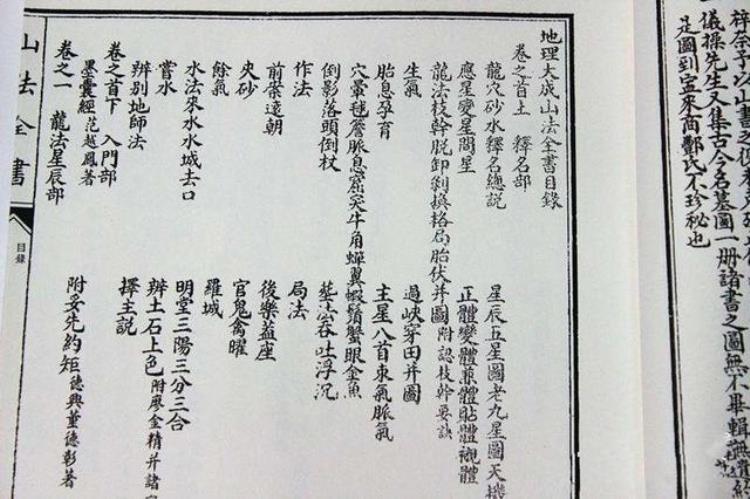 儀操先生又集古今名墓圖一册諸書之圖無不畢輯
是圖到宜來商鄭氏不珍秘也
地理大成山法全書目錄
卷之首上 釋名部
龍穴砂水釋名總説 星辰五星圖老九星圖天機
應星變星間星 正體變體兼體貼體襯體
龍法枝幹脱卸剥換格局胎伏并圖 附認枝幹要訣
生氣 過峽穿田并圖
胎息孕育 主星八首束氣脈氣
穴暈毬簷脈息窟突牛角蟬翼蝦鬚蟹眼金魚
倒影落頭倒杖 葬法吞吐浮沉
作法 局法
前案遠朝 後樂蓋座
夾砂 官鬼禽曜
餘氣 羅城
水法來水水城去口 明堂三陽三分三合
嘗水 辨土石上色 附廖金精并諸
辨别地師法 擇主説
卷之首下 入門部
墨囊經 范越鳳著 附妥先約矩 德興董德彰著
卷之一 龍法星辰部
山法全書
目錄